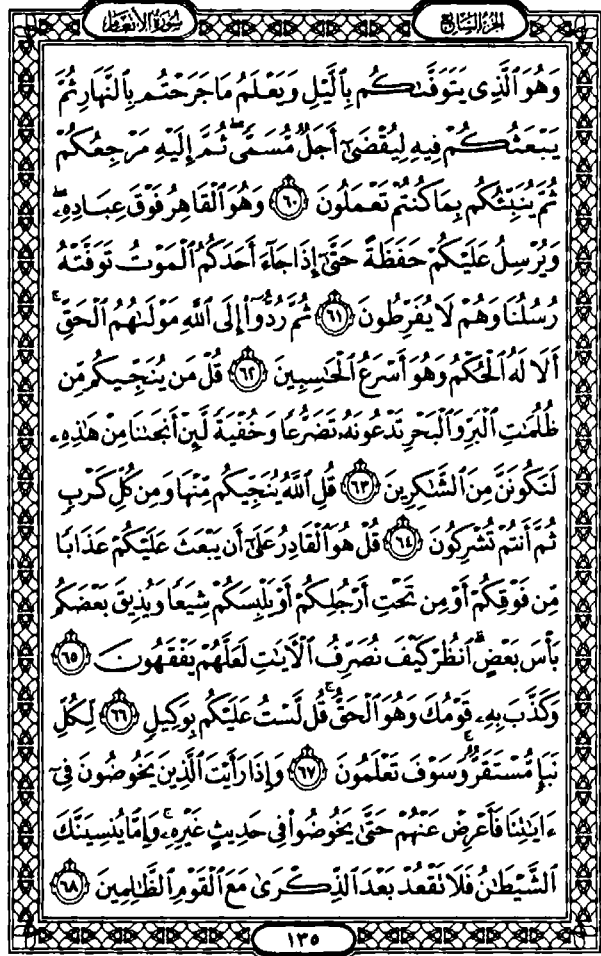 سُورَةُ الأَنْعَامِ
الجُزْءُ السَّابِعُ
وَهُوَ ٱلَّذِى يَتَوَفَّىٰكُم بِٱلَّيْلِ وَيَعْلَمُ مَا جَرَحْتُم بِٱلنَّهَارِ ثُمَّ
يَبْعَثُكُمْ فِيهِ لِيُقْضَىٰٓ أَجَلٌ مُّسَمًّى ۖ ثُمَّ إِلَيْهِ مَرْجِعُكُمْ
ثُمَّ يُنَبِّئُكُم بِمَا كُنتُمْ تَعْمَلُونَ ٦٠ وَهُوَ ٱلْقَاهِرُ فَوْقَ عِبَادِهِۦ ۖ
وَيُرْسِلُ عَلَيْكُمْ حَفَظَةً حَتَّىٰٓ إِذَا جَآءَ أَحَدَكُمُ ٱلْمَوْتُ تَوَفَّتْهُ
رُسُلُنَا وَهُمْ لَا يُفَرِّطُونَ ٦١ ثُمَّ رُدُّوٓا۟ إِلَى ٱللَّهِ مَوْلَىٰهُمُ ٱلْحَقِّ ۚ
أَلَا لَهُ ٱلْحُكْمُ وَهُوَ أَسْرَعُ ٱلْحَٰسِبِينَ ٦٢ قُلْ مَن يُنَجِّيكُم مِّن
ظُلُمَٰتِ ٱلْبَرِّ وَٱلْبَحْرِ تَدْعُونَهُۥ تَضَرُّعًا وَخُفْيَةً لَّئِنْ أَنجَىٰنَا مِنْ هَٰذِهِۦ
لَنَكُونَنَّ مِنَ ٱلشَّٰكِرِينَ ٦٣ قُلِ ٱللَّهُ يُنَجِّيكُم مِّنْهَا وَمِن كُلِّ كَرْبٍ
ثُمَّ أَنتُمْ تُشْرِكُونَ ٦٤ قُلْ هُوَ ٱلْقَادِرُ عَلَىٰٓ أَن يَبْعَثَ عَلَيْكُمْ عَذَابًا
مِّن فَوْقِكُمْ أَوْ مِن تَحْتِ أَرْجُلِكُمْ أَوْ يَلْبِسَكُمْ شِيَعًا وَيُذِيقَ بَعْضَكُم
بَأْسَ بَعْضٍ ۗ ٱنظُرْ كَيْفَ نُصَرِّفُ ٱلْءَايَٰتِ لَعَلَّهُمْ يَفْقَهُونَ ٦٥
وَكَذَّبَ بِهِۦ قَوْمُكَ وَهُوَ ٱلْحَقُّ ۚ قُل لَّسْتُ عَلَيْكُم بِوَكِيلٍ ٦٦ لِّكُلِّ
نَبَإٍ مُّسْتَقَرٌّ ۚ وَسَوْفَ تَعْلَمُونَ ٦٧ وَإِذَا رَأَيْتَ ٱلَّذِينَ يَخُوضُونَ فِىٓ
ءَايَٰتِنَا فَأَعْرِضْ عَنْهُمْ حَتَّىٰ يَخُوضُوا۟ فِى حَدِيثٍ غَيْرِهِۦ ۚ وَإِمَّا يُنسِيَنَّكَ
ٱلشَّيْطَٰنُ فَلَا تَقْعُدْ بَعْدَ ٱلذِّكْرَىٰ مَعَ ٱلْقَوْمِ ٱلظَّٰلِمِينَ ٦٨
١٣٥